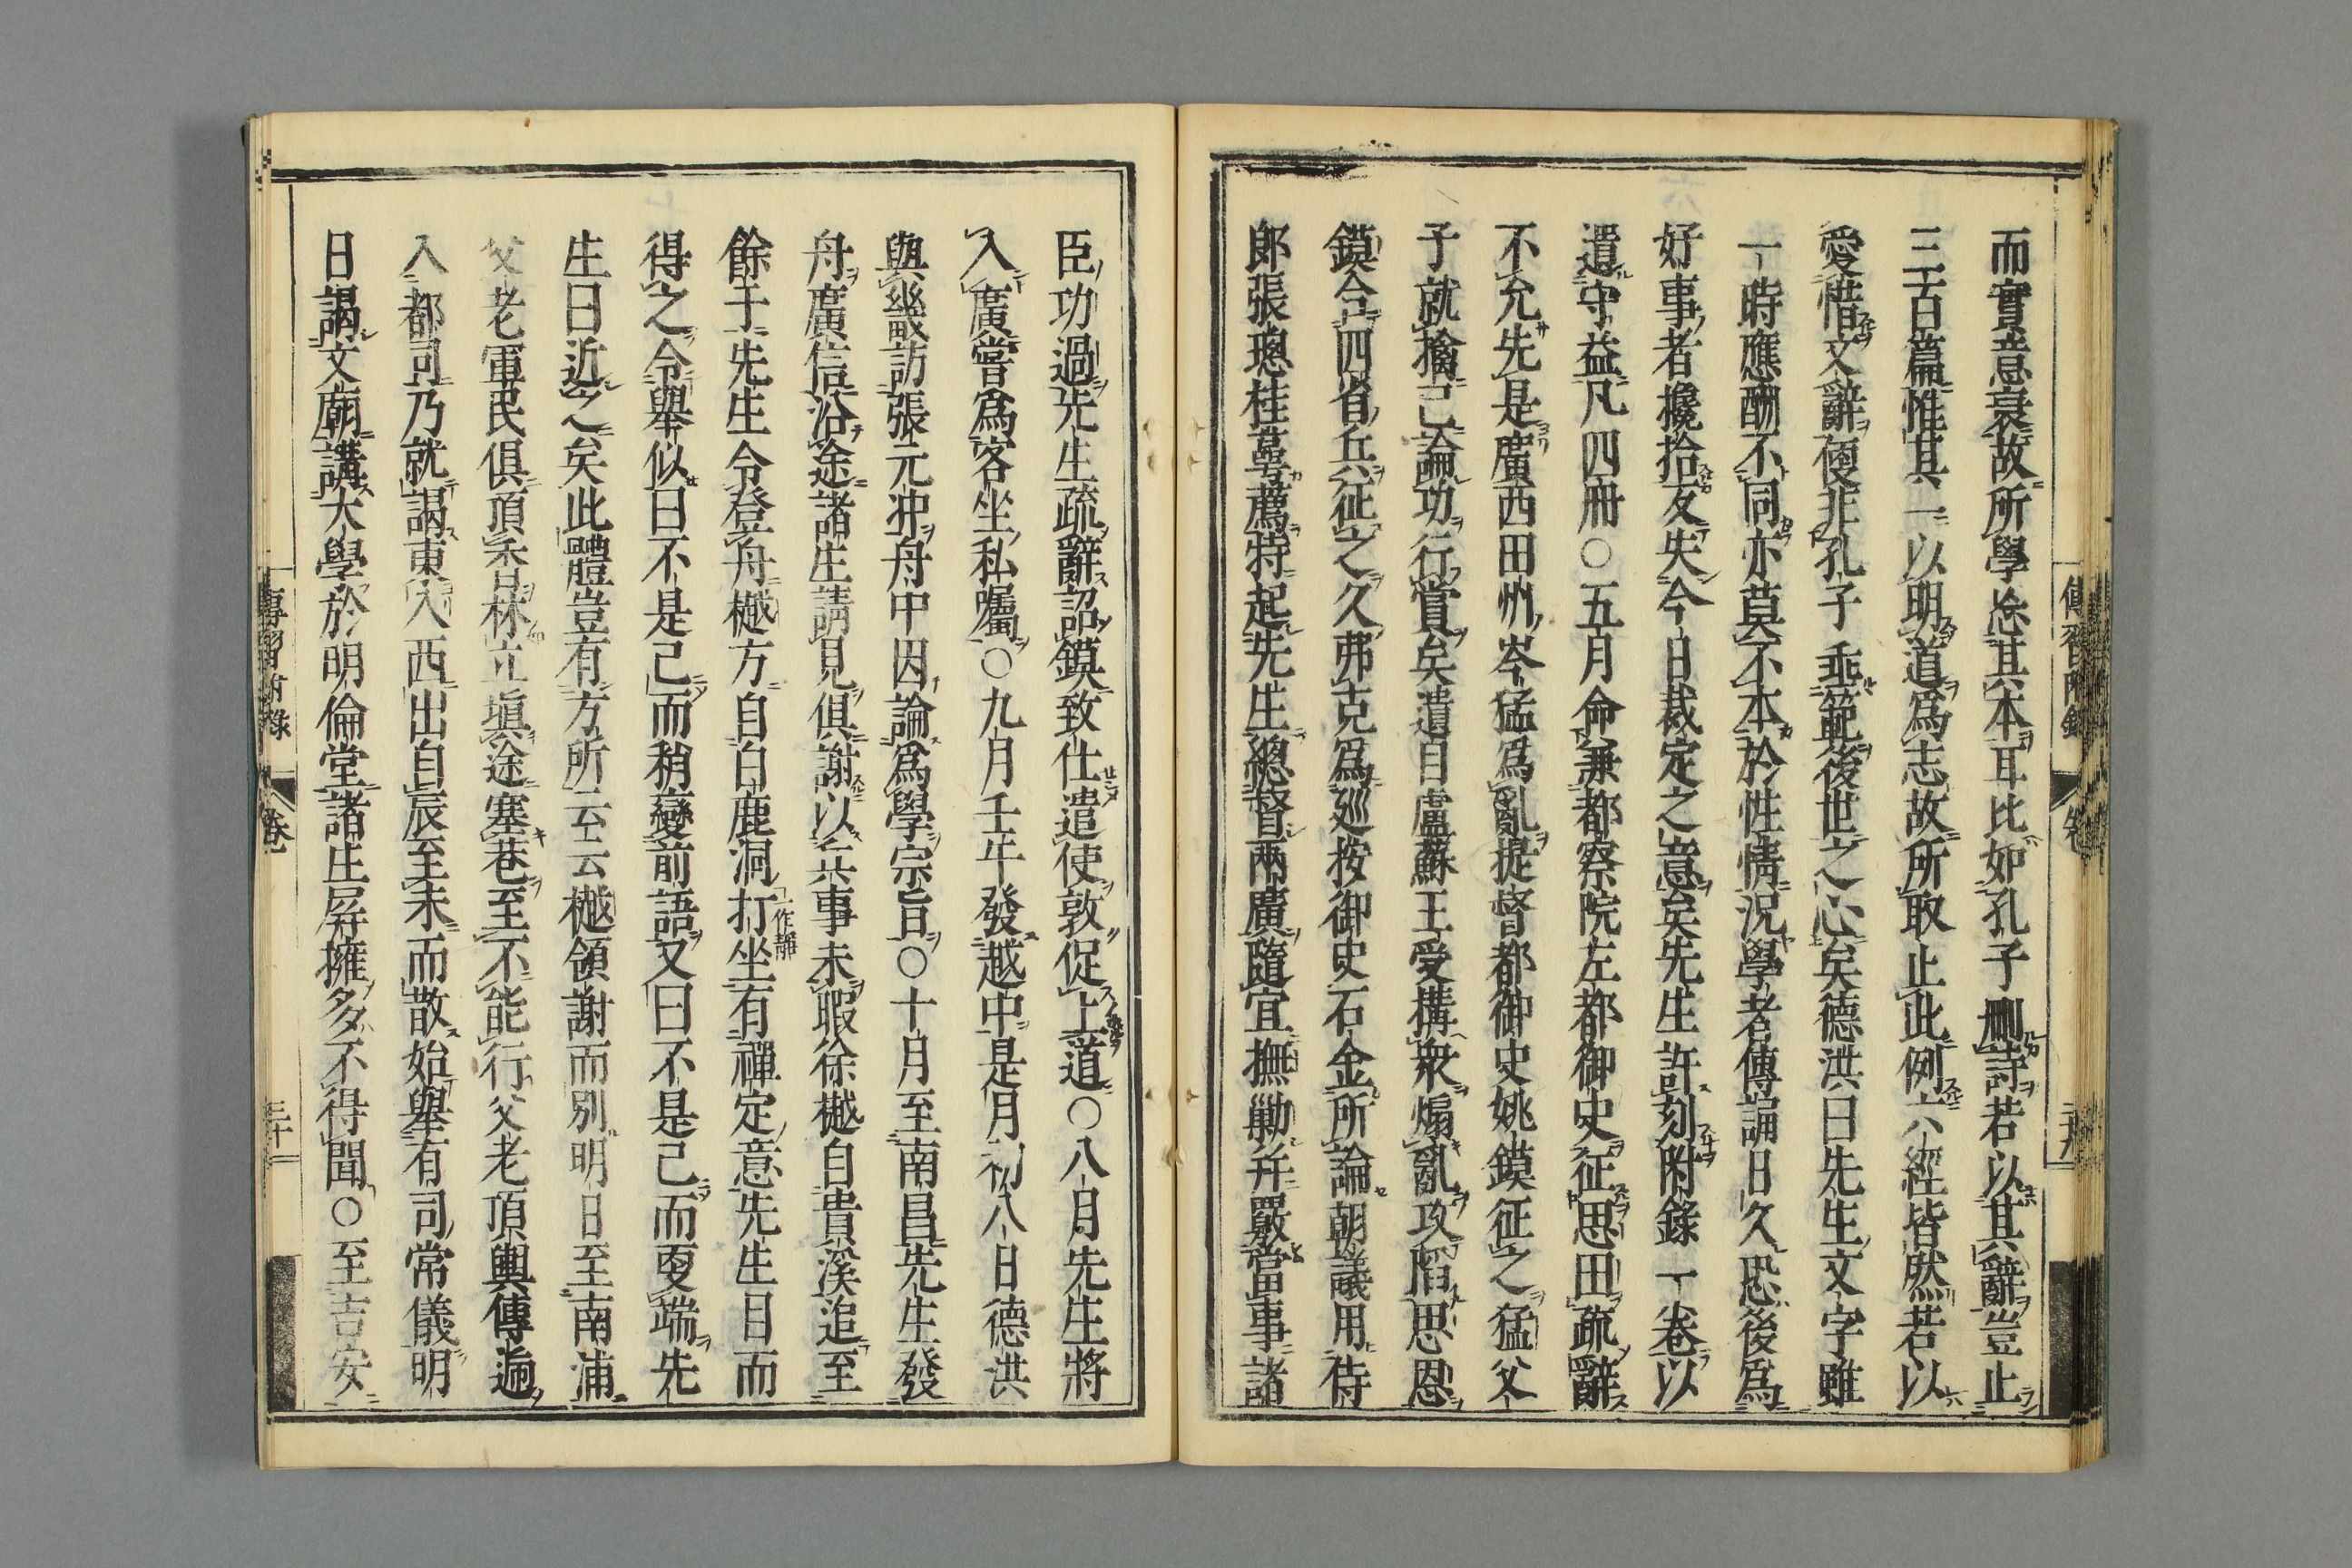 而實意衰故所學忘其本耳比如孔子刪詩若以其辭豈止
三百篇惟其一以明道爲志故所取止此例六經皆然若以
愛惜文辭便非孔子垂範後世之心矣德洪曰先生文字雖
一時應酬不同亦莫不本於性情況學者傳誦日久恐後爲
好事者攙拾反失今日裁定之意矣先生許刻附錄一卷以
遺守益凡四冊○五月命兼都察院左都御史征思田疏辭
不允先是廣西田州岑猛爲亂提督都御史姚鏌征之猛父
子就擒已論功行賞矣遺目盧蘇王受搆衆煽亂攻陷思恩
鏌合四省兵征之久弗克爲巡按御史石金所論朝議用侍
郎張璁桂萼薦特起先生總督兩廣隨宜撫勦并覈當事諸
傳習附錄 卷 二十九
臣功過先生疏辭詔鏌致仕遣使敦促上道○八月先生將
入廣嘗爲客坐私囑○九月壬午發越中是月初八日德洪
與畿訪張元冲舟中因論爲學宗旨○十月至南昌先生發
舟廣信沿途諸生請見俱謝以兵事未暇徐樾自貴溪追至
餘干先生令登舟樾方自白鹿洞打一作靜坐有禪定意先生目而
得之令舉似曰不是已而稍變前語又曰不是已而更端先
生曰近之矣此體豈有方所云云樾領謝而別明日至南浦
父老軍民俱頂香林立塡途塞巷至不能行父老頂輿傳遞
入都司乃就謁東入西出自辰至未而散始舉有司常儀明
日謁文廟講大學於明倫堂諸生屏擁多不得聞○至吉安
傳習附錄 卷 三十